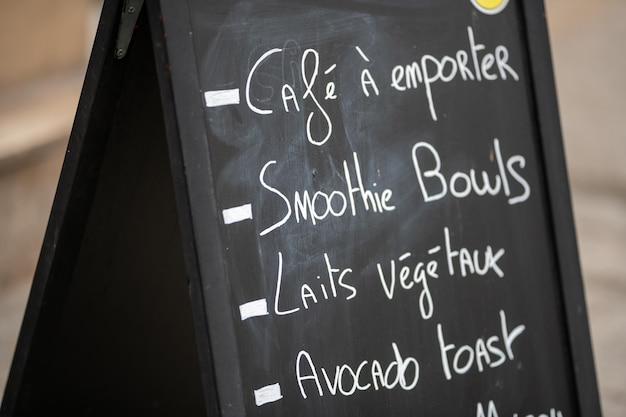 - Café à emporter
- Smoothie Bowls
- Laits végétaux
- Avocado toast